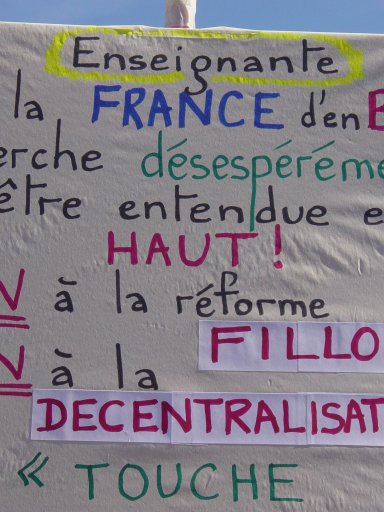 Enseignante
la FRANCE d'en B
erche désespéréme
être entendue e
HAUT !
N à la réforme
FILLO
N à la
DECENTRALISAT
« TOUCHE